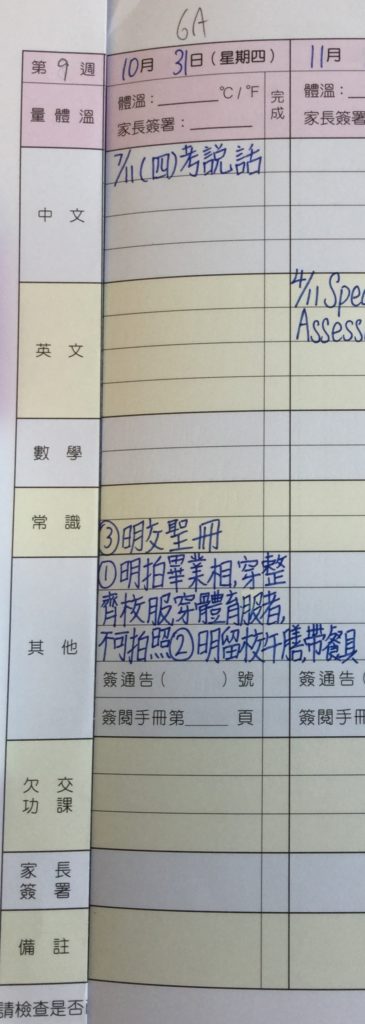 6A
第 9 週
10月 31日(星期四)
11月
量體溫
體溫：______℃/℉
家長簽署：______
完成
體溫：
家長簽署
中文
7/11(四)考說話
英文
4/11 Spea
Assess
數學
常識
③明交聖冊
其他
①明拍畢業相,穿整
齊校服,穿體育服者,
不可拍照②明留校午膳,帶餐具
簽通告( )號
簽通告(
簽閱手冊第____頁
簽閱手冊
欠交
功課
家長
簽署
備註
請檢查是否